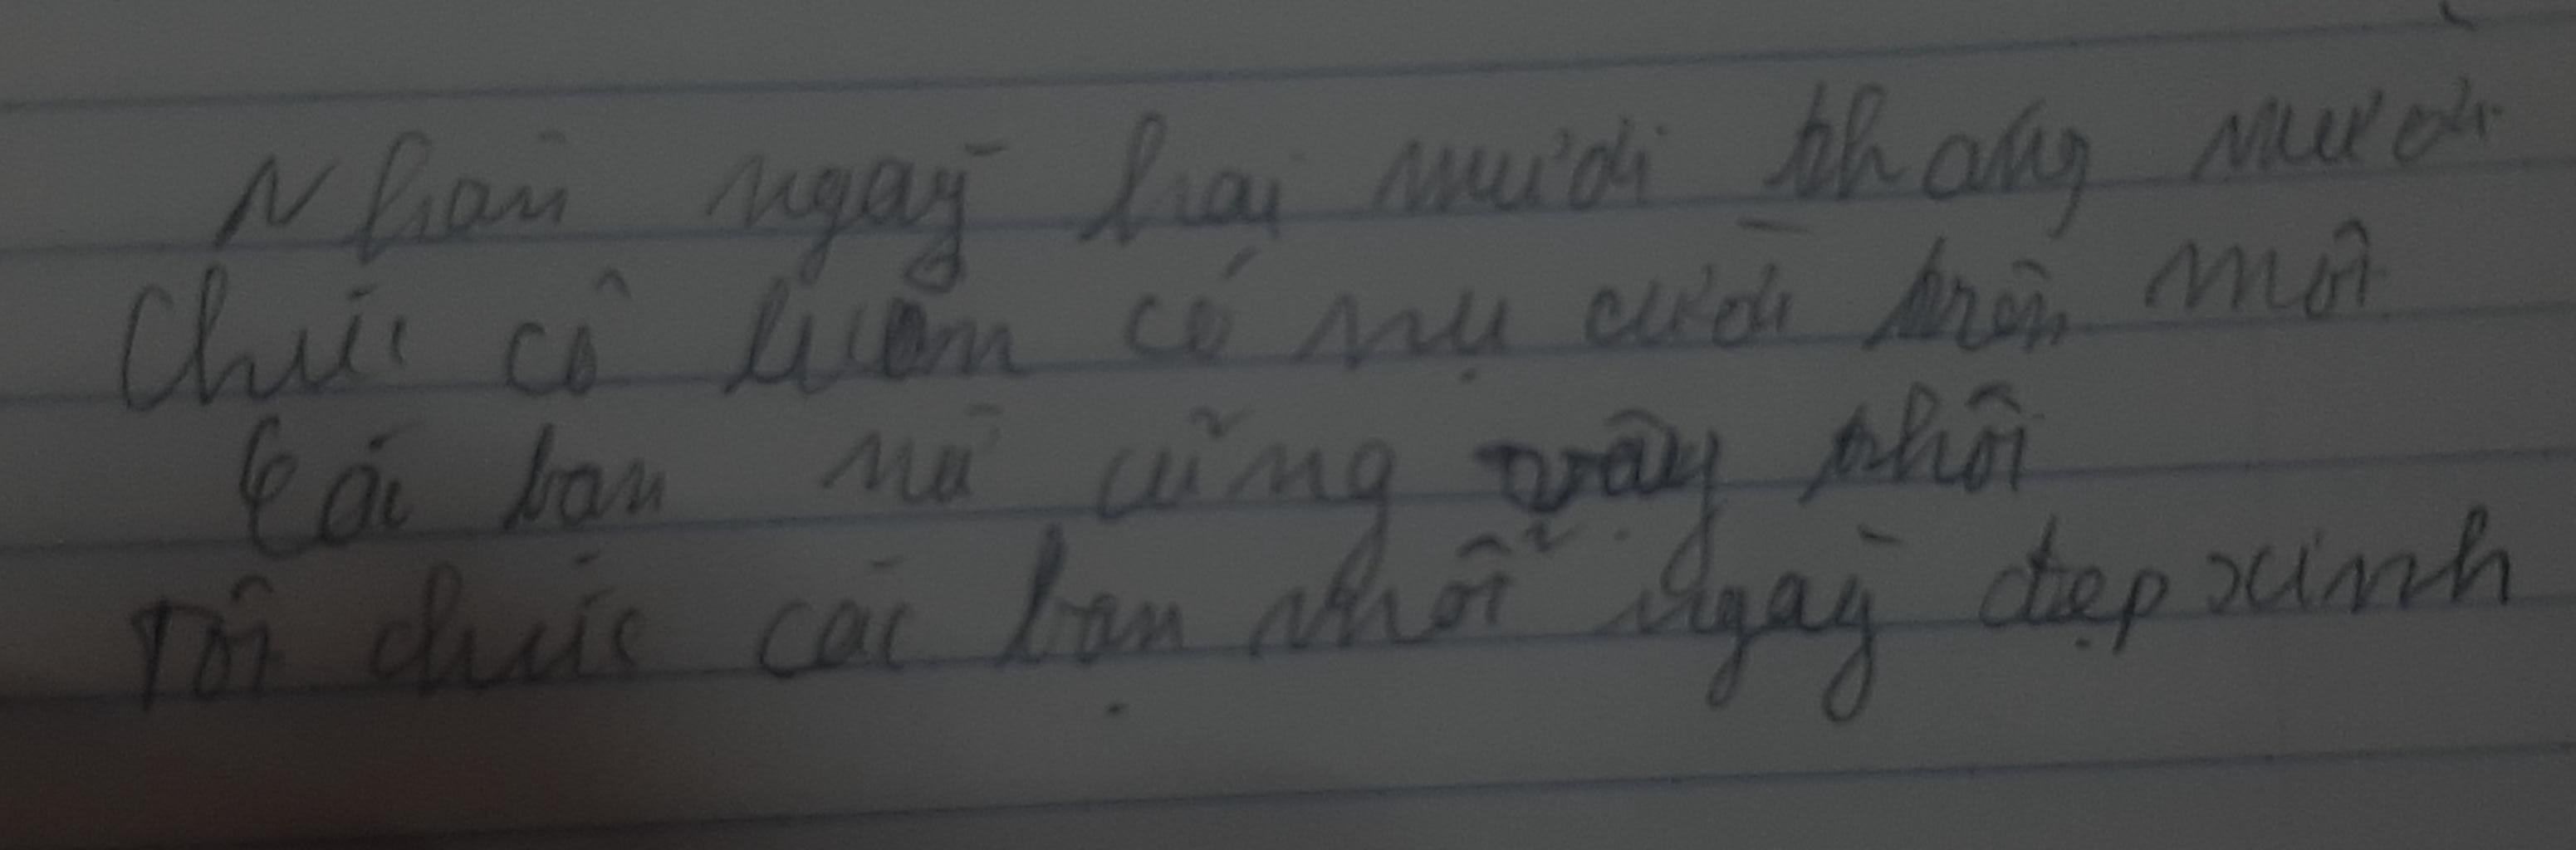 Nhân ngày hai mươi tháng mười
Chúc cô luôn có nụ cười trên môi
Các bạn nữ cũng vậy thôi
Tôi chúc các bạn mỗi ngày đẹp xinh